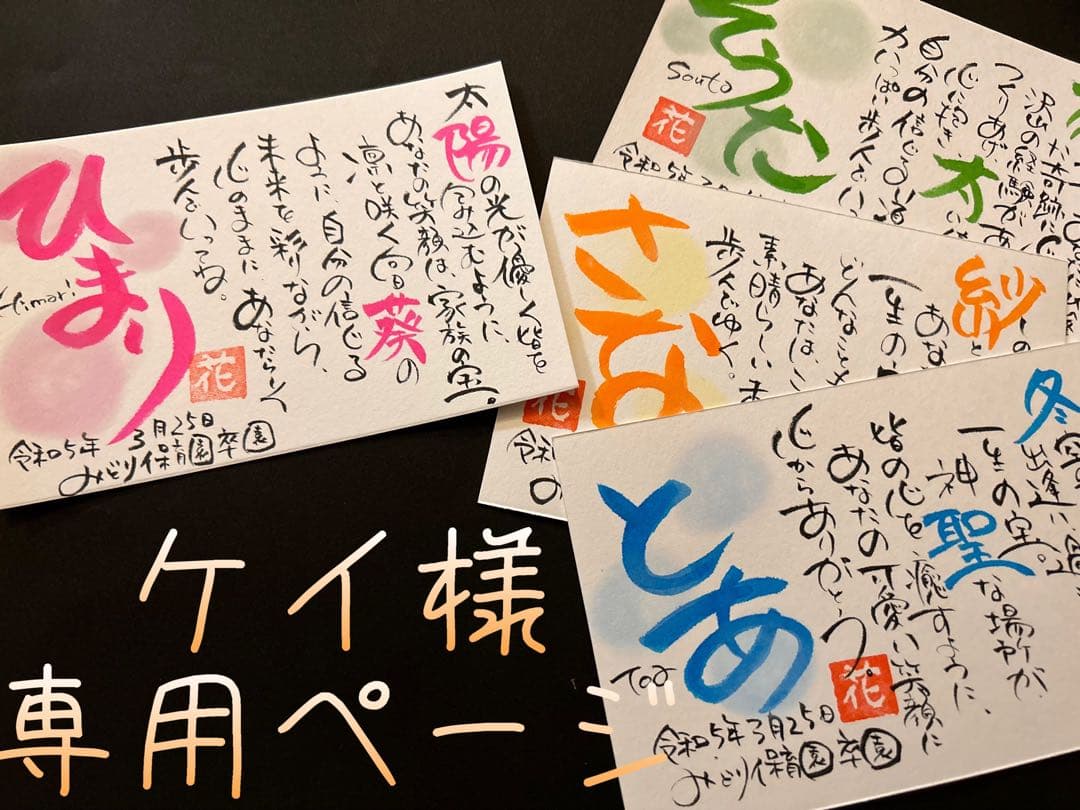 太陽の光が優しく皆を
包み込むように、
あなたの笑顔は、家族の宝。
凛と咲く向日葵の
ように、自分の信じる
未来を彩りながら、
心のままに あなたらしく
歩んでいってね。
ひまり
Himari
花
令和5年 3月25日
みどり保育園卒園
そうた
Souta
花
自分の信じる道
力いっぱい歩んでい
心に抱き
つくりあげ
沢山の経験が
才
令和5年
さな
紗
あな
一生の
どんなことも
あなたは、
素晴らしい未
歩んでゆく。
花
令和
冬
出逢い
一生の宝。
神聖な場所が、
皆の心を癒すように、
あなたの可愛い笑顔に
心からありがとう。
とあ
Toa
花
令和5年3月25日
みどり保育園卒園
ケイ様
専用ページ